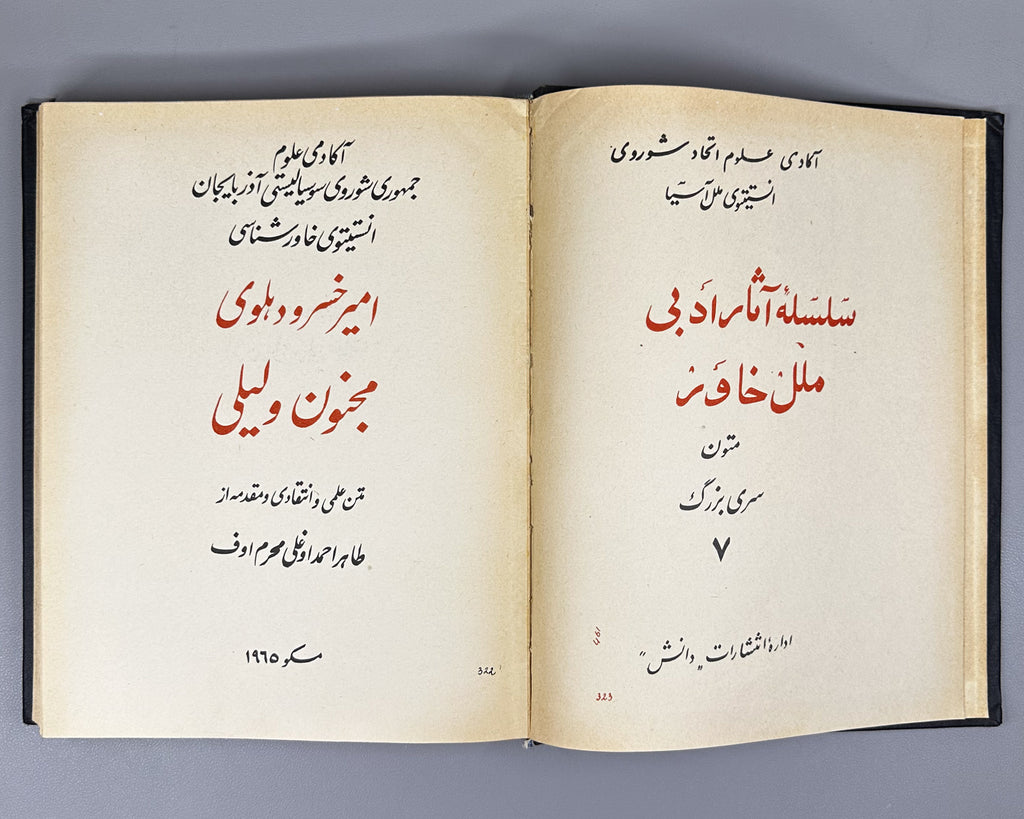 آکادمی علوم اتحاد شوروی
انستیتوی ملل آسیا
سلسلهٔ آثار ادبی
ملل خاور
متون
سری بزرگ
۷
ادارهٔ انتشارات „دانش“
461
323
آکادمی علوم
جمهوری شوروی سوسیالیستی آذربایجان
انستیتوی خاورشناسی
امیر خسرو دهلوی
مجنون و لیلی
متن علمی و انتقادی و مقدمه از
طاهر احمد اوغلی محرم اوف
مسکو ۱۹٦٥
322